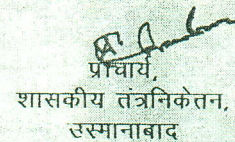 प्राचार्य,
शासकीय तंत्रनिकेतन,
उस्मानाबाद